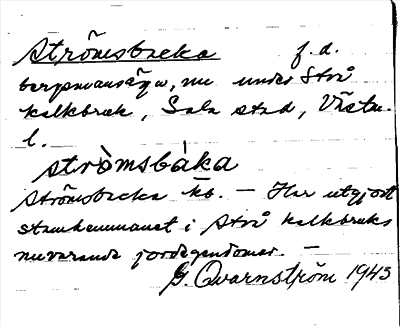 Strömsbacka f.d.
bergsmansäga, nu under Strå
kalkbruk, Sala stad, Västm.
l.
strömsbàka
Strömsbacka kb. – Har utgjort
stamhemmanet i Strå kalkbruks
nuvarande jordegendomar. –
G. Qvarnström 1943